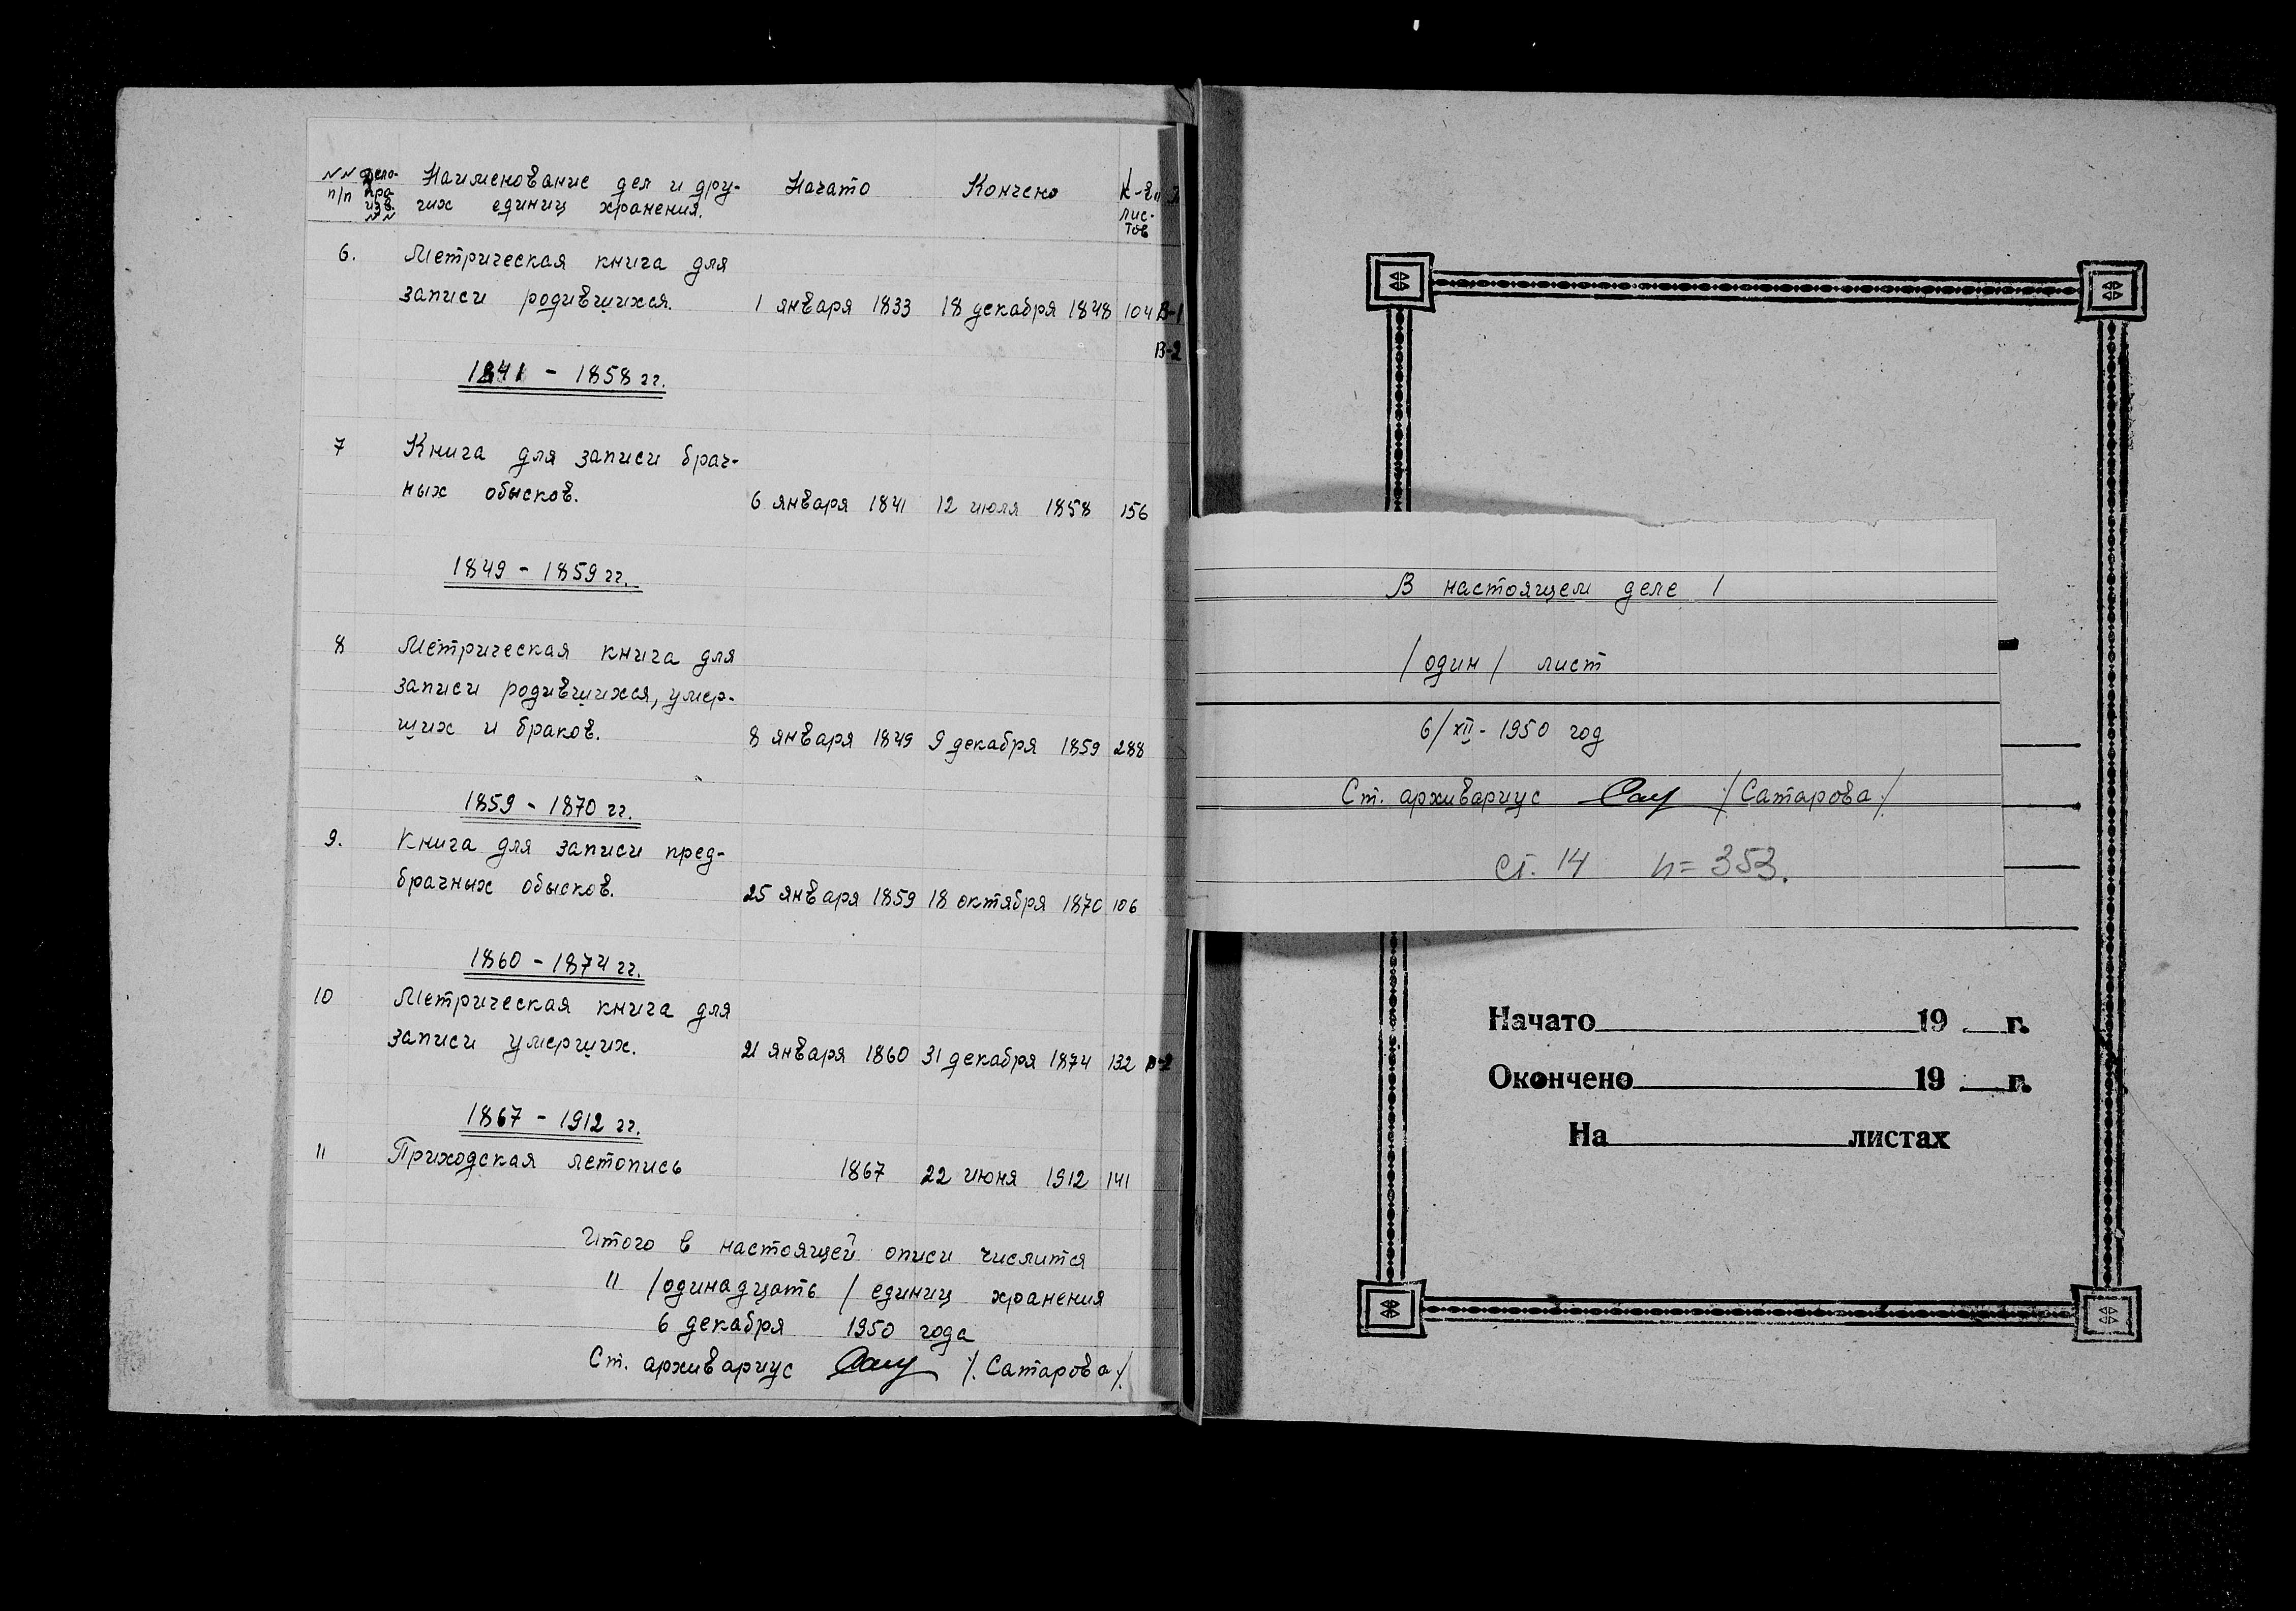 NN п/п Дело-произв. NN Наименование дел и дру- Начато Кончено К-во лис-тов
гих единиц хранения.
6. Метрическая книга для
записи родившихся. 1 января 1833 18 декабря 1848 104 В-1
В-2
1841 - 1858 гг.
7 Книга для записи брач-
ных обысков. 6 января 1841 12 июля 1858 156
1849 - 1859 гг.
8 Метрическая книга для
записи родившихся, умер-
ших и браков. 8 января 1849 9 декабря 1859 288
1859 - 1870 гг.
9. Книга для записи пред-
брачных обысков. 25 января 1859 18 октября 1870 106
1860 - 1874 гг.
10 Метрическая книга для
записи умерших. 21 января 1860 31 декабря 1874 132 В-2
1867 - 1912 гг.
11 Приходская летопись 1867 22 июня 1912 141
Итого в настоящей описи числится
11 /одинадцать/ единиц хранения
6 декабря 1950 года
Ст. архивариус /.Сатарова/.
В настоящем деле 1
/один/ лист
6/XII - 1950 год
Ст. архивариус /Сатарова/.
ст. 14 n = 353.
Начато 19 г.
Окончено 19 г.
На листах